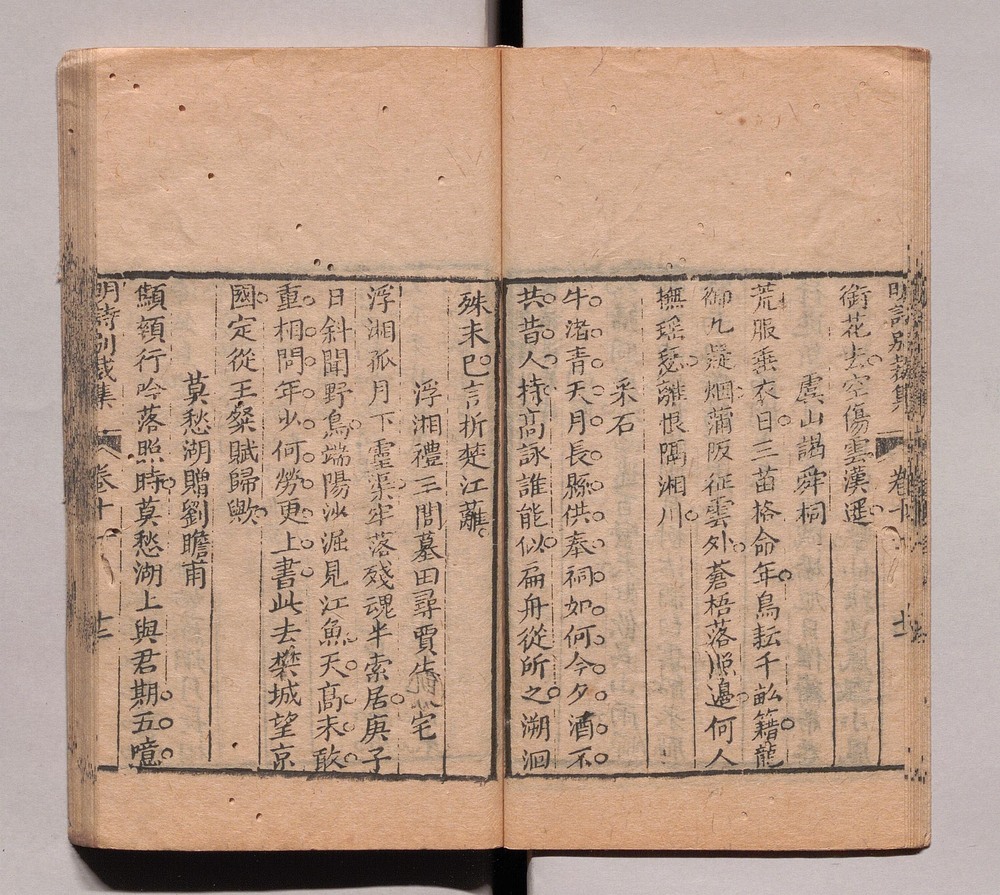 明詩別裁集 卷十 十一
銜花去空傷雲漢遥
虞山謁舜祠
荒服垂衣日三苗格命年鳥耘千畝籍龍
御九疑烟蒲阪征雲外蒼梧落照邉何人
撫瑶瑟離恨隔湘川
采石
牛渚青天月長縣供奉祠如何今夕酒不
共昔人持高詠誰能似扁舟從所之溯洄
殊未巳言折楚江蘺
浮湘禮三閭墓田尋賈 宅
浮湘孤月下靈渠牢落殘魂半索居庚子
日斜聞野鳥端陽沙漲見江魚天高未敢
重相問年少何勞更上書此去樊城望京
國定從王粲賦歸歟
莫愁湖贈劉瞻甫
顦顇行吟落照時莫愁湖上與君期五噫
明詩別裁集 卷十 十二